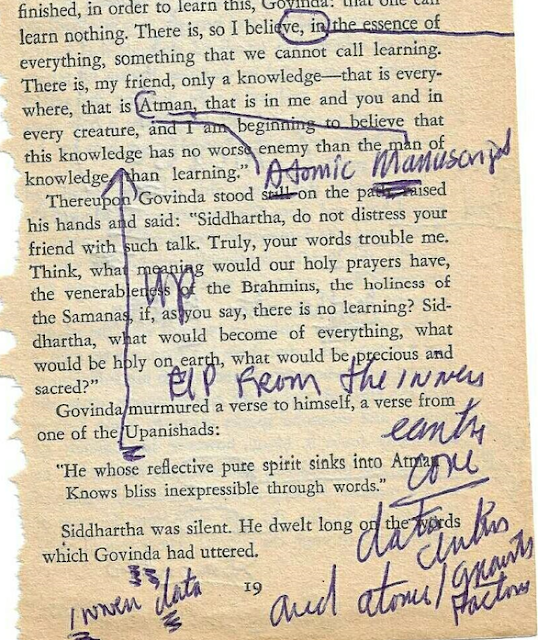 finished, in order to learn this, Govinda: that one can
learn nothing. There is, so I believe, in the essence of
everything, something that we cannot call learning.
There is, my friend, only a knowledge—that is every-
where, that is Atman, that is in me and you and in
every creature, and I am beginning to believe that
this knowledge has no worse enemy than the man of
knowledge, than learning."
Atomic Manuscript
Thereupon Govinda stood still on the path, raised
his hands and said: "Siddhartha, do not distress your
friend with such talk. Truly, your words trouble me.
Think, what meaning would our holy prayers have,
the venerableness of the Brahmins, the holiness of
the Samanas, if, as you say, there is no learning? Sid-
dhartha, what would become of everything, what
would be holy on earth, what would be precious and
sacred?"
UP
UP From the inner
earth
core
Govinda murmured a verse to himself, a verse from
one of the Upanishads:
"He whose reflective pure spirit sinks into Atman
Knows bliss inexpressible through words."
Siddhartha was silent. He dwelt long on the words
which Govinda had uttered.
data
inner data
19
and atomic/
Factors